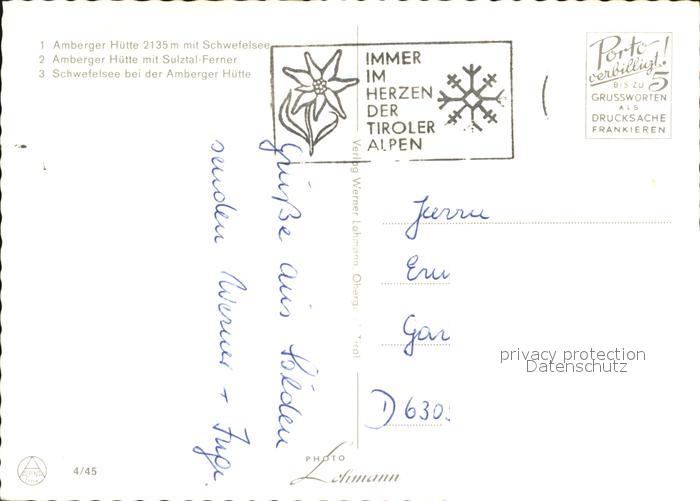 1 Amberger Hütte 2135 m mit Schwefelsee
2 Amberger Hütte mit Sulztal-Ferner
3 Schwefelsee bei der Amberger Hütte
IMMER
IM
HERZEN
DER
TIROLER
ALPEN
Porto-
verbilligt!
BIS ZU 5
GRUSSWORTEN
ALS
DRUCKSACHE
FRANKIEREN
Grüße aus Sölden
senden Werner +
Verlag Werner Lohmann, Tirol
Herrn
privacy protection
Datenschutz
D 630
4/45
PHOTO
Lohmann